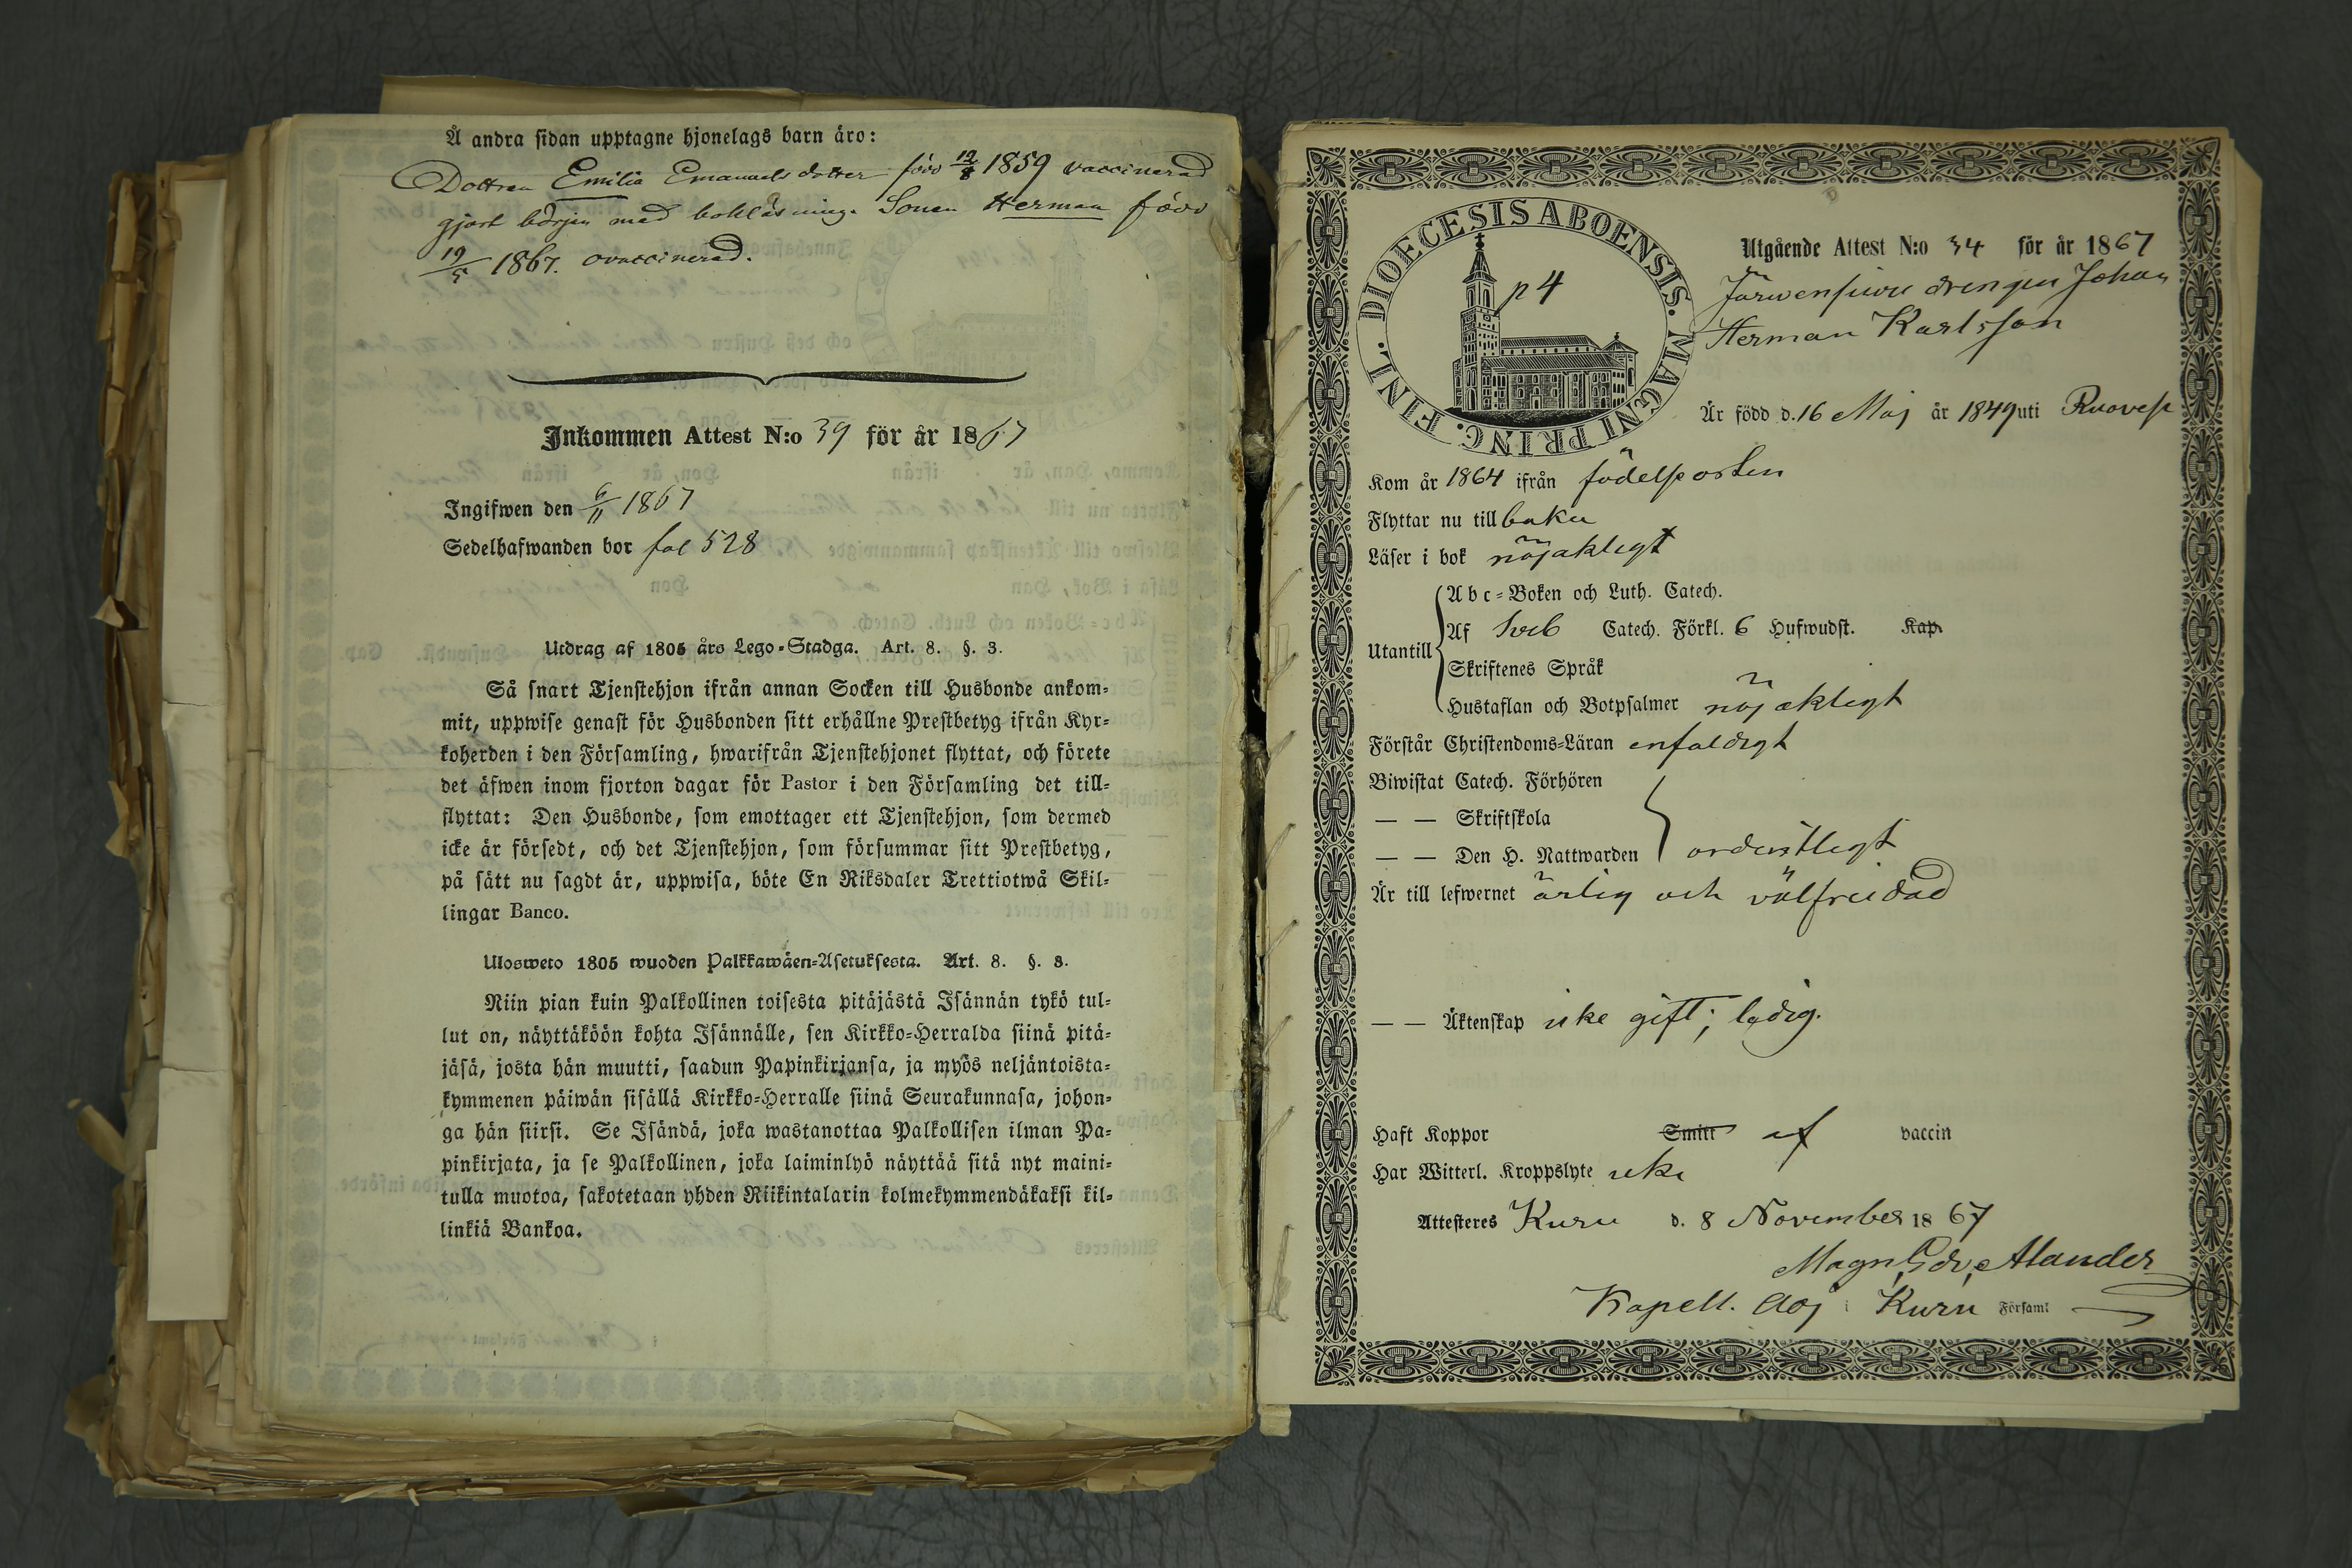 Å andra sidan upptagne hjonelags barn äro:
Dottren Emilia Emanuelsdotter född 12/8 1859 vaccinerad
gjort början med bokläsning. Sonen Herman född
19/5 1867. ovaccinerad.
Inkommen Attest N:o 39 för år 1867
Ingifwen den 6/11 1867
Sedelhafwanden bor fol 528
Utdrag af 1805 års Lego-Stadga. Art. 8. §. 3.
Så snart Tjenstehjon ifrån annan Socken till Husbonde ankom-
mit, uppwise genast för Husbonden sitt erhållne Prestbetyg ifrån Kyr-
koherden i den Församling, hwarifrån Tjenstehjonet flyttat, och förete
det äfwen inom fjorton dagar för Pastor i den Församling det till-
flyttat: Den Husbonde, som emottager ett Tjenstehjon, som dermed
icke är försedt, och det Tjenstehjon, som försummar sitt Prestbetyg,
på sätt nu sagdt är, uppwisa, böte En Riksdaler Trettiotwå Skil-
lingar Banco.
Ulosweto 1805 wuoden Palkkawäen-Asetuksesta. Art. 8. §. 3.
Niin pian kuin Palkollinen toisesta pitäjästä Isännän tykö tul-
lut on, näyttäköön kohta Isännälle, sen Kirkko-Herralda siinä pitä-
jäsä, josta hän muutti, saadun Papinkirjansa, ja myös neljäntoista-
kymmenen päiwän sisällä Kirkko-Herralle siinä Seurakunnasa, johon-
ga hän siirsi. Se Isändä, joka wastanottaa Palkollisen ilman Pa-
pinkirjata, ja se Palkollinen, joka laiminlyö näyttää sitä nyt maini-
tulla muotoa, sakotetaan yhden Riikintalarin kolmekymmendäkaksi kil-
linkiä Bankoa.
DIOECESIS ABOENSIS. MAGNI PRINC. FINL.
p 4
Utgående Attest N:o 34 för år 1867
drengen Johan
Herman Karlsson
Är född d. 16 Maj år 1849 uti Ruovesi
Kom år 1864 ifrån födelseorten
Flyttar nu tillbaka
Läser i bok nöjaktligt
Utantill
Abc-Boken och Luth. Catech.
Af Catech. Förkl. 6 Hufwudst. Kap.
Skriftenes Språk
Hustaflan och Botpsalmer nöjaktligt
Förstår Christendoms-Läran enfaldigt
Biwistat Catech. Förhören
— — Skriftskola
— — Den H. Nattwarden ordentligt
Är till lefwernet ärlig och välfreidad
— — Äktenskap icke gift; ledig.
Haft Koppor Smitt af vaccin
Har Witterl. Kroppslyte icke
Attesteres Kuru d. 8 November 1867
Magn. Edv. Alander
Kapell. Adj i Kuru Församl